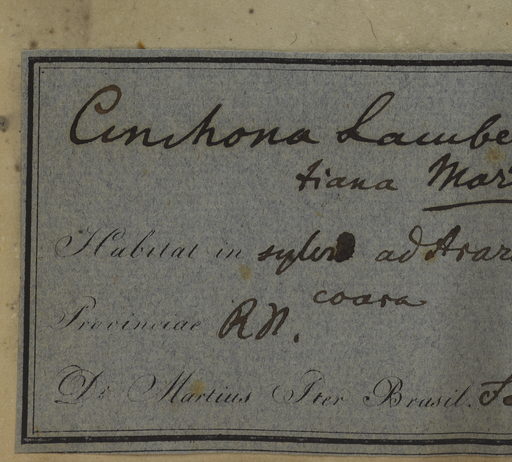 Cinchona Lambe
tiana Mar
Habitat in sylvis ad Arar
coara
Provinciae R N.
Dr. Martius Iter Brasil.